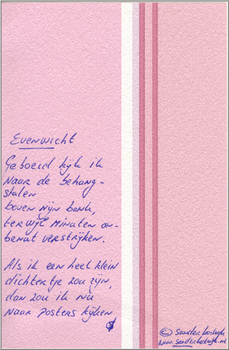 Evenwicht
Geboeid kijk ik
Naar de behang-
stalen
boven mijn bank,
terwijl minuten on-
benut verstrijken.
Als ik een heel klein
dichtertje zou zijn,
dan zou ik nu
Naar posters kijken
© Sander
www.